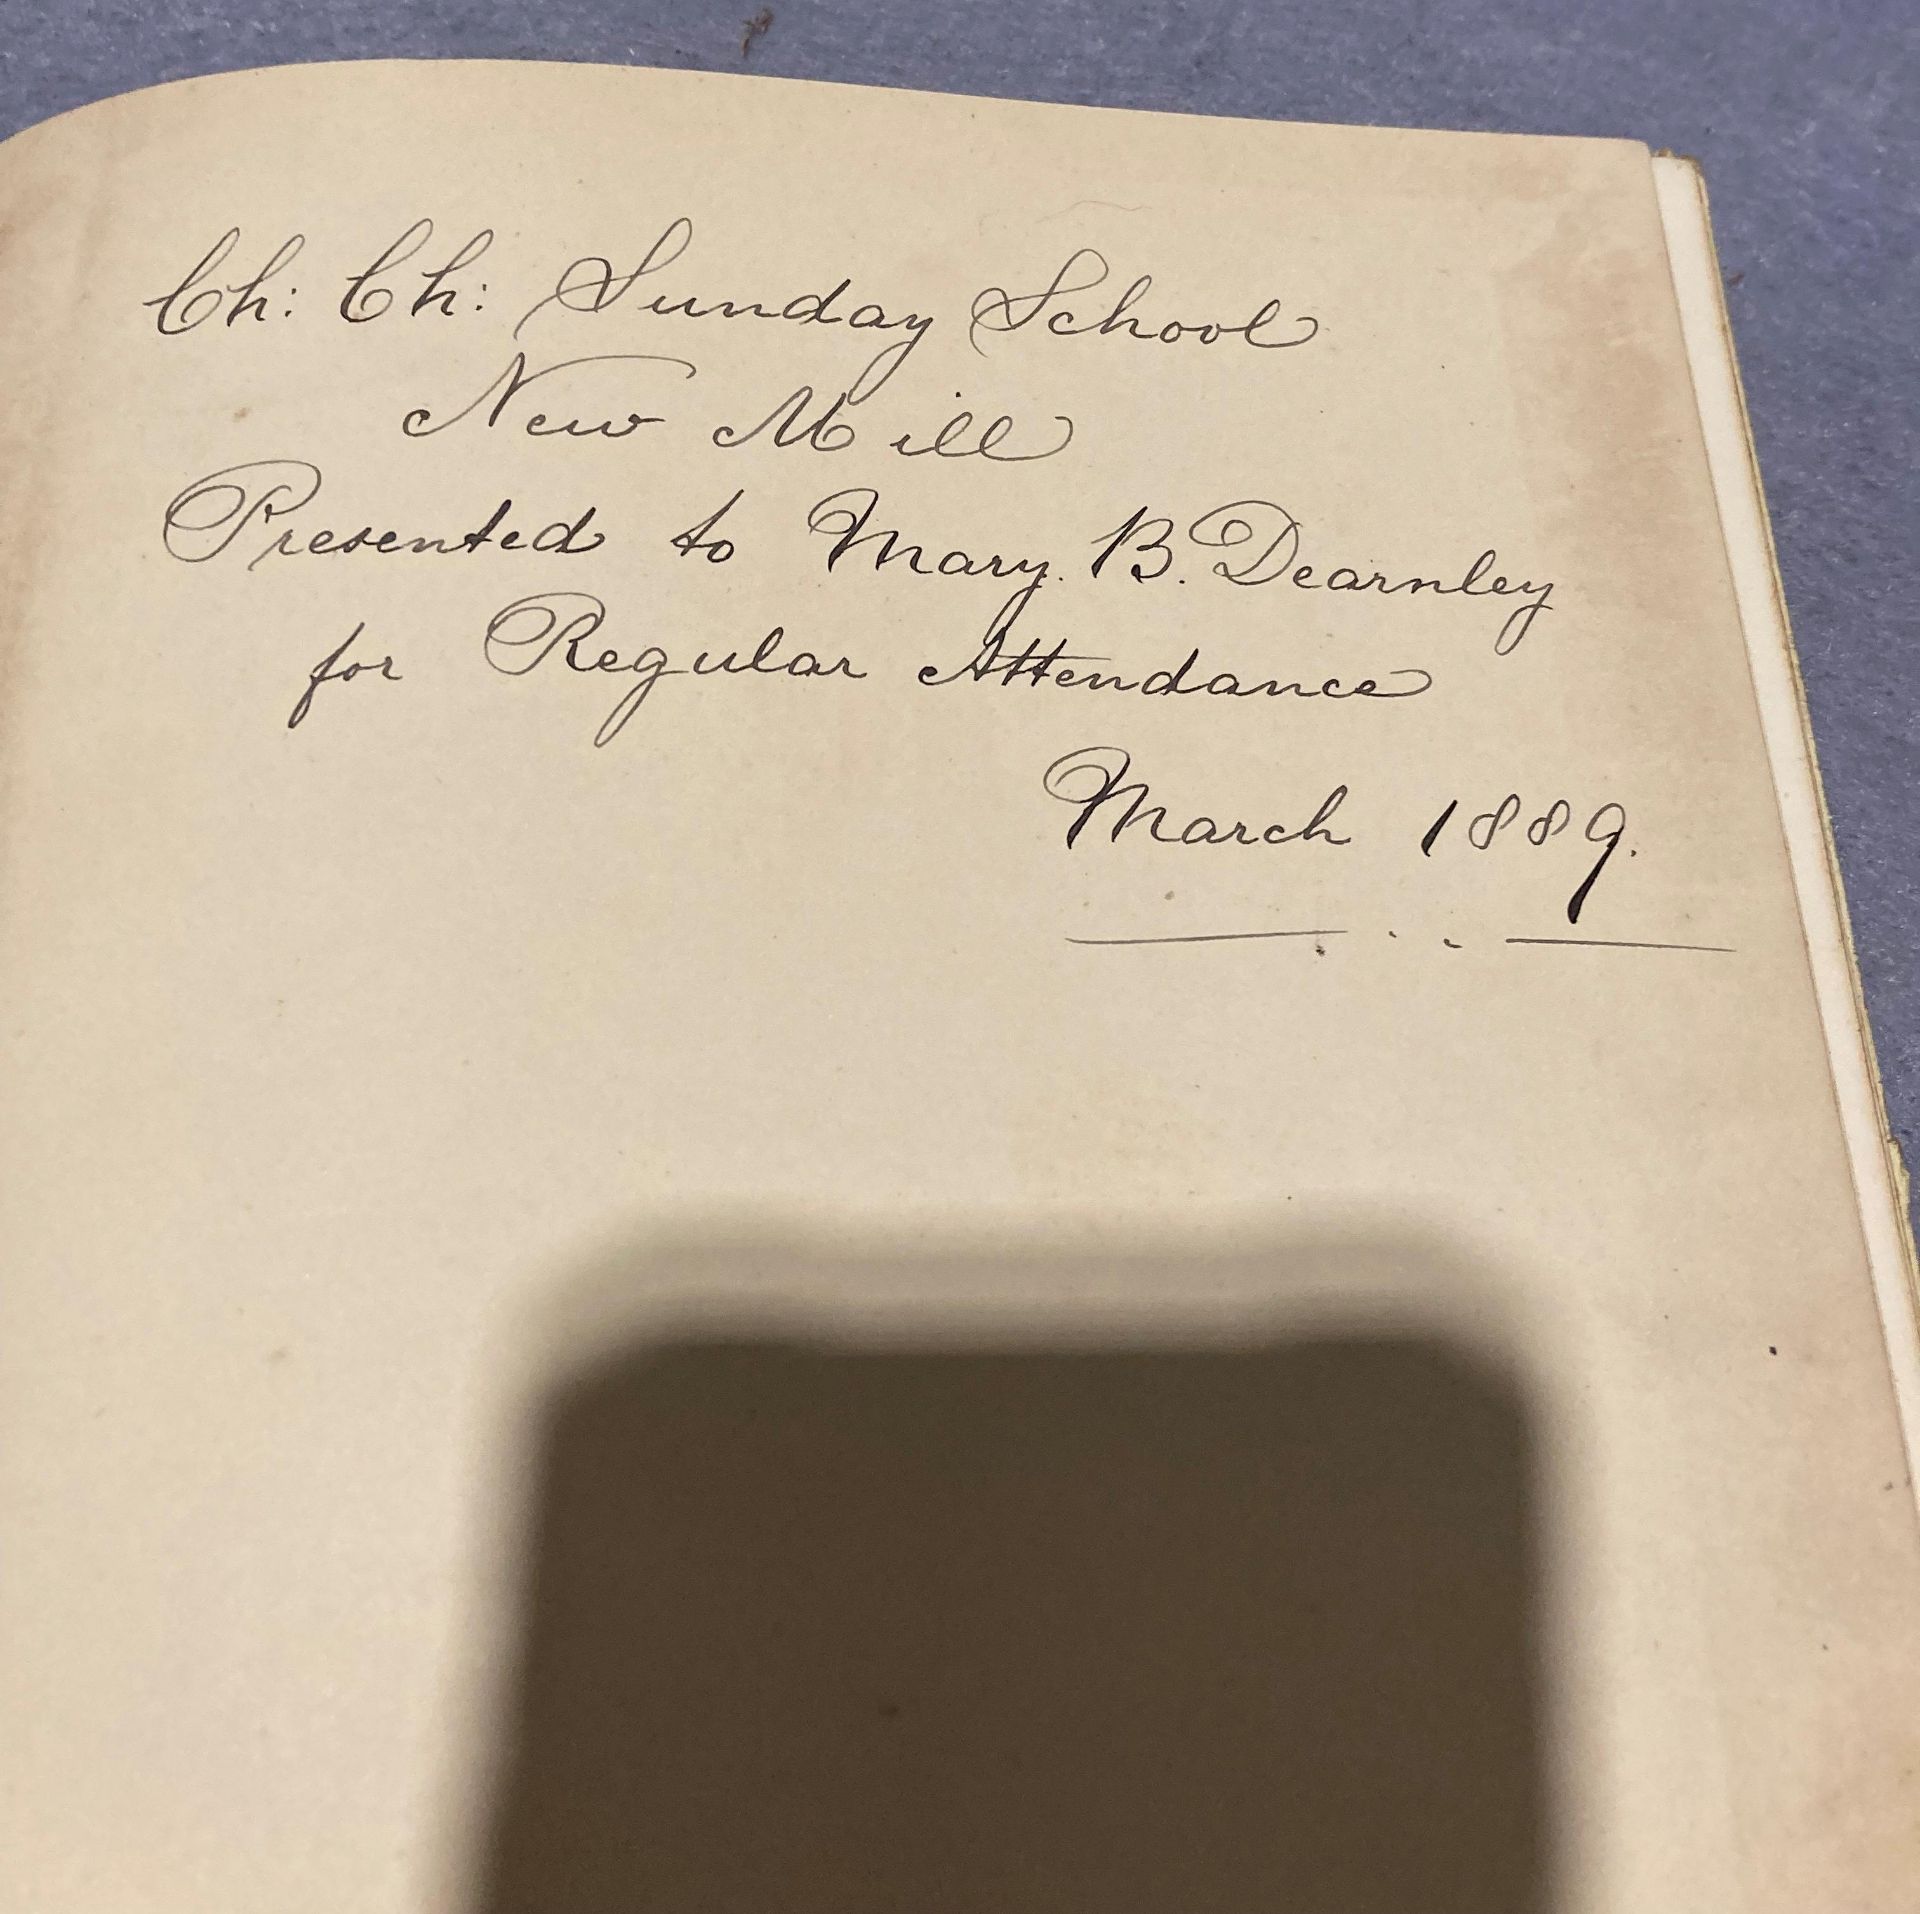 Ch: Ch: Sunday School
New Mill
Presented to Mary. B. Dearnley
for Regular Attendance
March 1889.